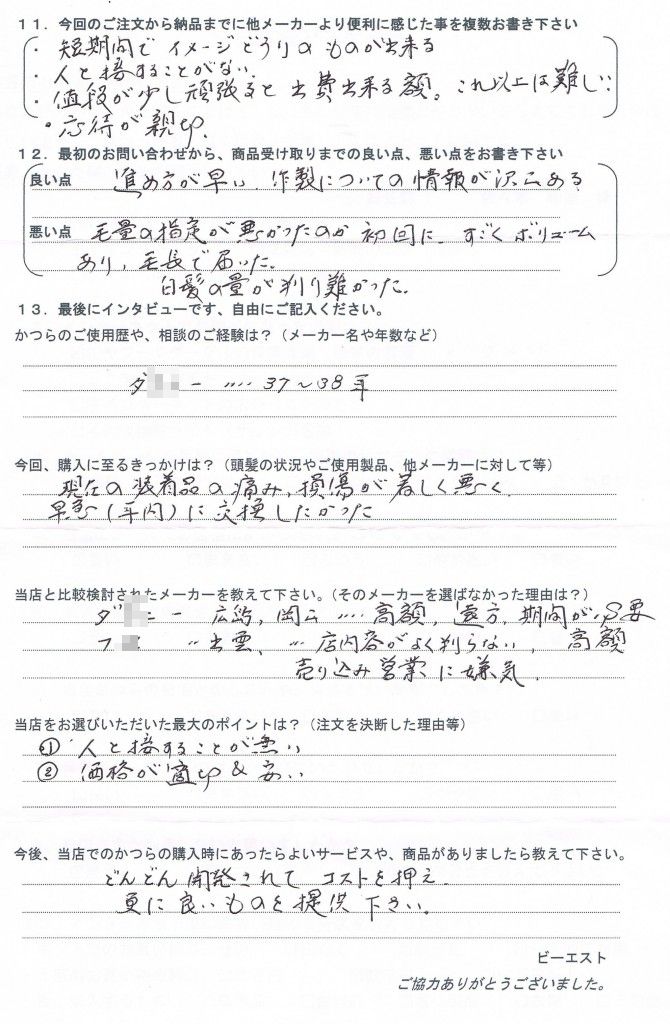 11. 今回のご注文から納品までに他メーカーより便利に感じた事を複数お書き下さい
・短期間でイメージどうりのものが出来る
・人と接することがない.
・値段が少し頑張ると出費出来る額。これ以上は難しい
・応待が親切.
12. 最初のお問い合わせから、商品受け取りまでの良い点、悪い点をお書き下さい
良い点 進め方が早い. 作製についての情報が沢山ある
悪い点 毛量の指定が悪かったのか 初回に、すごくボリューム
あり, 毛長で届いた.
白髪の量が判り難かった.
13. 最後にインタビューです、自由にご記入ください。
かつらのご使用歴や、相談のご経験は?(メーカー名や年数など)
ダ ー ‥‥ 37〜38年
今回、購入に至るきっかけは?(頭髪の状況やご使用製品、他メーカーに対して等)
現在の装着品の痛み, 損傷が著しく悪く.
早急(年内)に交換したかった
当店と比較検討されたメーカーを教えて下さい。(そのメーカーを選ばなかった理由は?)
ダ ー 広島, 岡山 ‥‥ 高額, 遠方, 期間が必要
フ 〃 出雲, ‥ 店内容がよく判らない, 高額
売り込み営業に嫌気.
当店をお選びいただいた最大のポイントは?(注文を決断した理由等)
① 人と接することが無い
② 価格が適切 & 安い
今後、当店でのかつらの購入時にあったらよいサービスや、商品がありましたら教えて下さい。
どんどん開発されてコストを押え.
更に良いものを提供下さい。
ビーエスト
ご協力ありがとうございました。